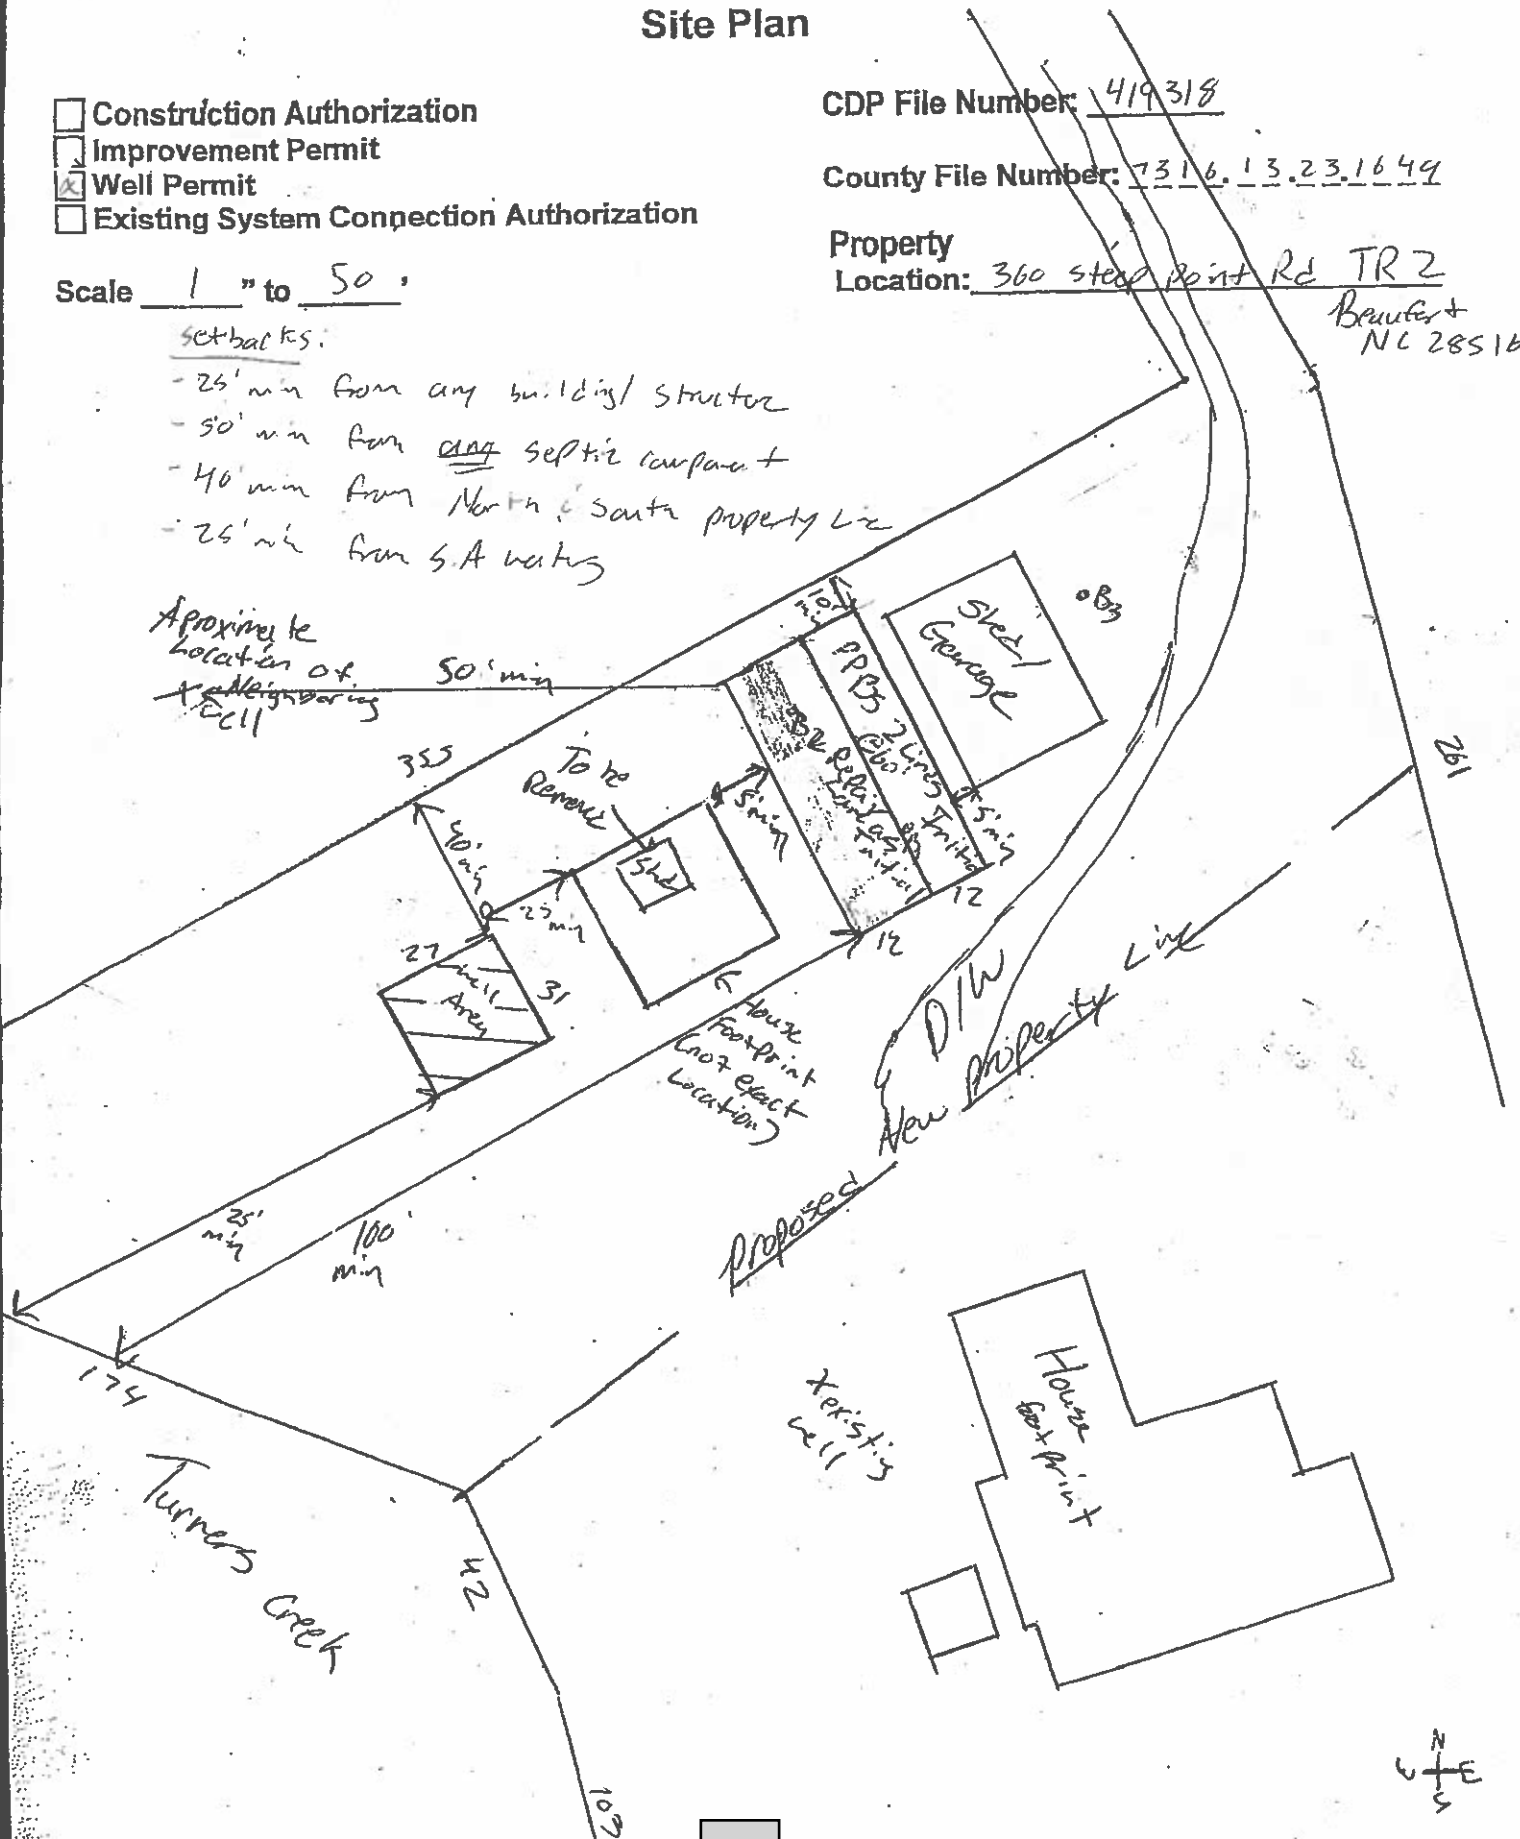 Site Plan
Construction Authorization
Improvement Permit
Well Permit
Existing System Connection Authorization
CDP File Number: 419318
County File Number: 7316.13.23.1649
Property
Location: 360 steep Point Rd TR 2
Beaufort
NC 28516
Scale 1 " to 50 '
setbacks:
- 25' min from any building/ structure
- 50' min from any septic component
- 40' min from North & South property Line
- 25' min from S.A waters
Aproximate
Location of
Neighboring
well
50' min
10'
min
Shed/
Garage
B3
PPBS 2 Lines
@60'
Initial
B2
Repair
Same as
Initial
5' min
12
12
5' min
355
To be
Removed
Shed
40'
min
25'
min
27
Well
Area
31
House
Footprint
(not exact
Location)
D/W
261
Proposed New Property Line
25'
min
100'
min
174
Turners Creek
42
103
x existing
well
House
footprint
N
W E
S